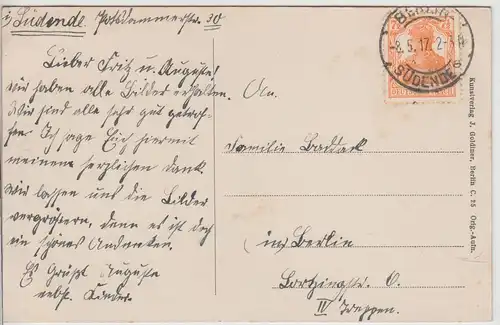 i/ Südende Potsdammerstr. 30
Lieber Fritz u. Auguste!
Wir haben alle Bilder erhalten.
Wir sind alle sehr gut getrof-
fen Ich sage Euch hiermit
meinen herzlichen Dank.
Wir lassen uns die Bilder
vergrößern, denn es ist doch
ein schönes Andenken.
Es Grüßt Auguste
nebst. Kinder.
An.
Familie Baddack
in/ Berlin
Lortzingstr. 6.
IV Treppen.
BERLIN
-8.5.17. 2-3 N
SÜDENDE
Kunstverlag J. Goldiner, Berlin C. 25 Orig.-Aufn.